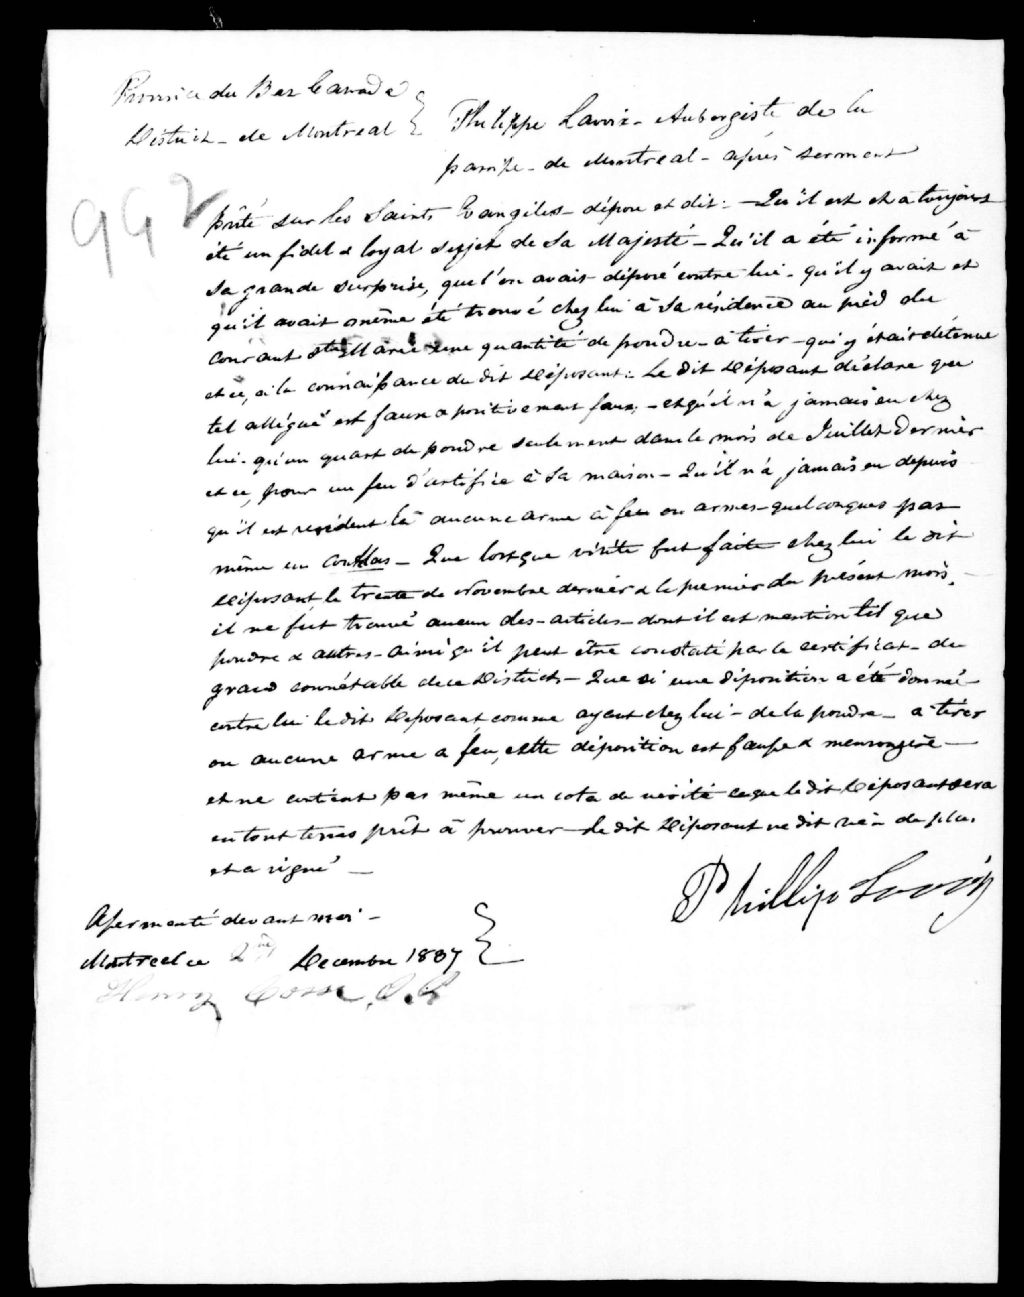 Province du Bas Canada
District de Montreal
Philippe Lavoix - Aubergiste de la
paroisse - de Montreal - après serment
992
prêté sur les Saints Evangiles - dépose et dit : - Qu'il est et a toujours
été un fidel & loyal sujet de Sa Majesté - Qu'il a été informé à
sa grande surprise, que l'on avait déposé contre lui - qu'il y avait et
qu'il avait même été trouvé chez lui à sa résidence au pied du
courant Ste Marie une quantité de poudre - a tirer - qui y était détenue
et ce, à la connaissance du dit Déposant : Le dit Déposant déclare que
tel allégué est faux & positivement faux, - et qu'il n'a jamais eu chez
lui - qu'un quart de poudre seulement dans le mois de Juillet dernier
et ce, pour un feu d'artifice à sa maison - Qu'il n'a jamais eu depuis
qu'il est resident là aucune arme à feu ou armes - quelconques pas
même un - Que lorsque visite fut faite chez lui le dit
Déposant le trente de Novembre dernier & le premier du présent mois,
il ne fut trouvé aucun des - articles - dont il est mention tel que
poudre & autres - ainsi qu'il peut être constaté par le certificat - du
grand connétable de ce District - Que si une déposition a été donné -
contre lui le dit Déposant comme ayant chez lui - de la poudre - a tirer
ou aucune arme a feu, cette déposition est fausse & mensongère -
et ne contient pas même un iota de vérité ce que le dit Déposant sera
en tout tems prêt à prouver - Le dit Déposant ne dit rien de plus
et a signé -
Phillip Lavoix
Assermenté devant moi -
Montreal ce 2me Decembre 1837
Henry Corse J.P.